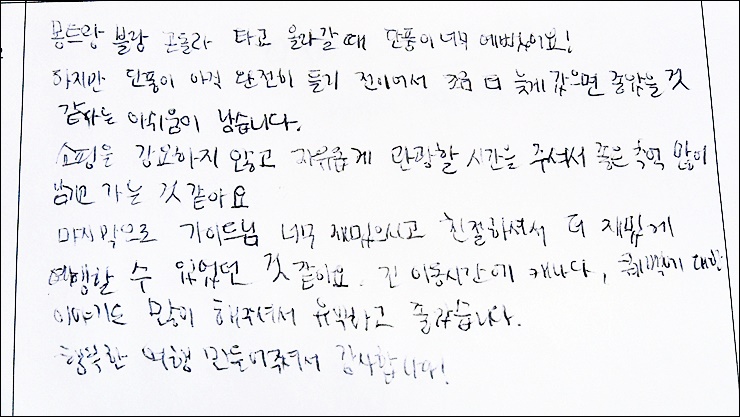 몽트랑 블랑 곤돌라 타고 올라갈 때 단풍이 너무 예뻤어요!
하지만 단풍이 아직 완전히 들기 전이어서 조금 더 늦게 갔으면 좋았을 것
같다는 아쉬움이 남습니다.
쇼핑을 강요하지 않고 자유롭게 관광할 시간을 주셔서 좋은 추억 많이
남기고 가는 것 같아요
마지막으로 가이드님 너무 재밌으시고 친절하셔서 더 재밌게
여행할 수 있었던 것 같아요. 긴 이동시간에 캐나다, 퀘벡에 대한
이야기도 많이 해주셔서 유익하고 좋았습니다.
행복한 여행 만들어주셔서 감사합니다!